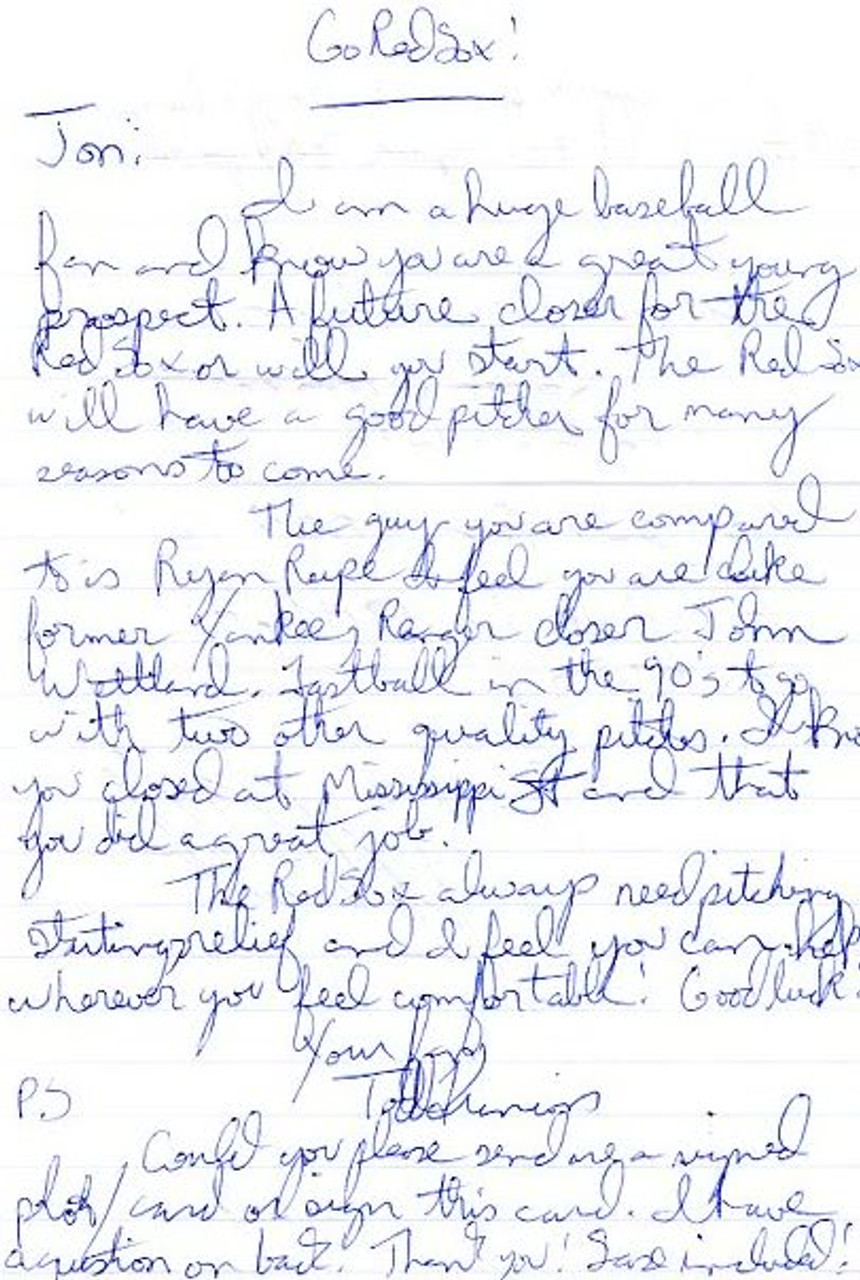 Go Red Sox!
Jon:
I am a huge baseball
fan and know you are a great young
prospect. A future closer for the
Red Sox or will you start. The Red Sox
will have a good pitcher for many
seasons to come.
The guy you are compared
to is Ryan Rupe I feel you are like
former Yankee, Ranger closer John
Wettland. Fastball in the 90's to go
with two other quality pitches. I kno
you closed at Mississippi St and that
you did a great job.
The Red Sox always need pitching
starting relief and I feel you can help
wherever you feel comfortable! Good luck!
Your fan,
Todd
PS
Could you please send me a signed
photo/card or sign this card. I have
a question on back. Thank you! Sase included!